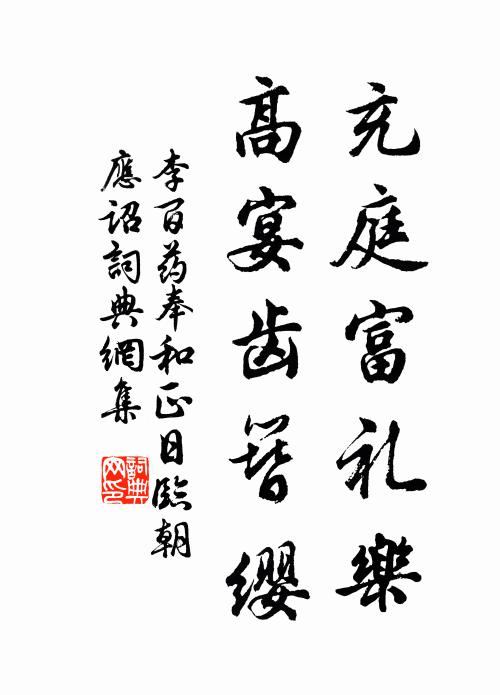 充庭富礼樂
高宴齿簪缨
李百药奉和正日臨朝
應詔詞典網集
詞典網印